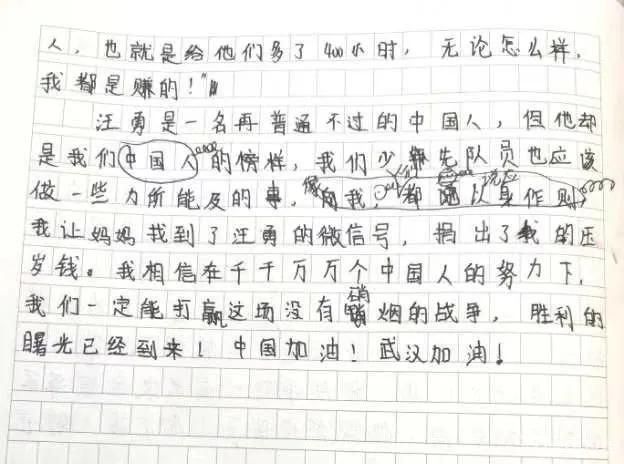 人，也就是给他们多了400小时，无论怎么样，
我都是赚的！"
汪勇是一名再普通不过的中国人，但他却
是我们中国人的榜样，我们少先队员也应该
做一些力所能及的事，像我，都以身作则
我让妈妈找到了汪勇的微信号，捐出了我的压
岁钱。我相信在千千万万个中国人的努力下，
我们一定能打赢这场没有硝烟的战争，胜利的
曙光已经到来！中国加油！武汉加油！